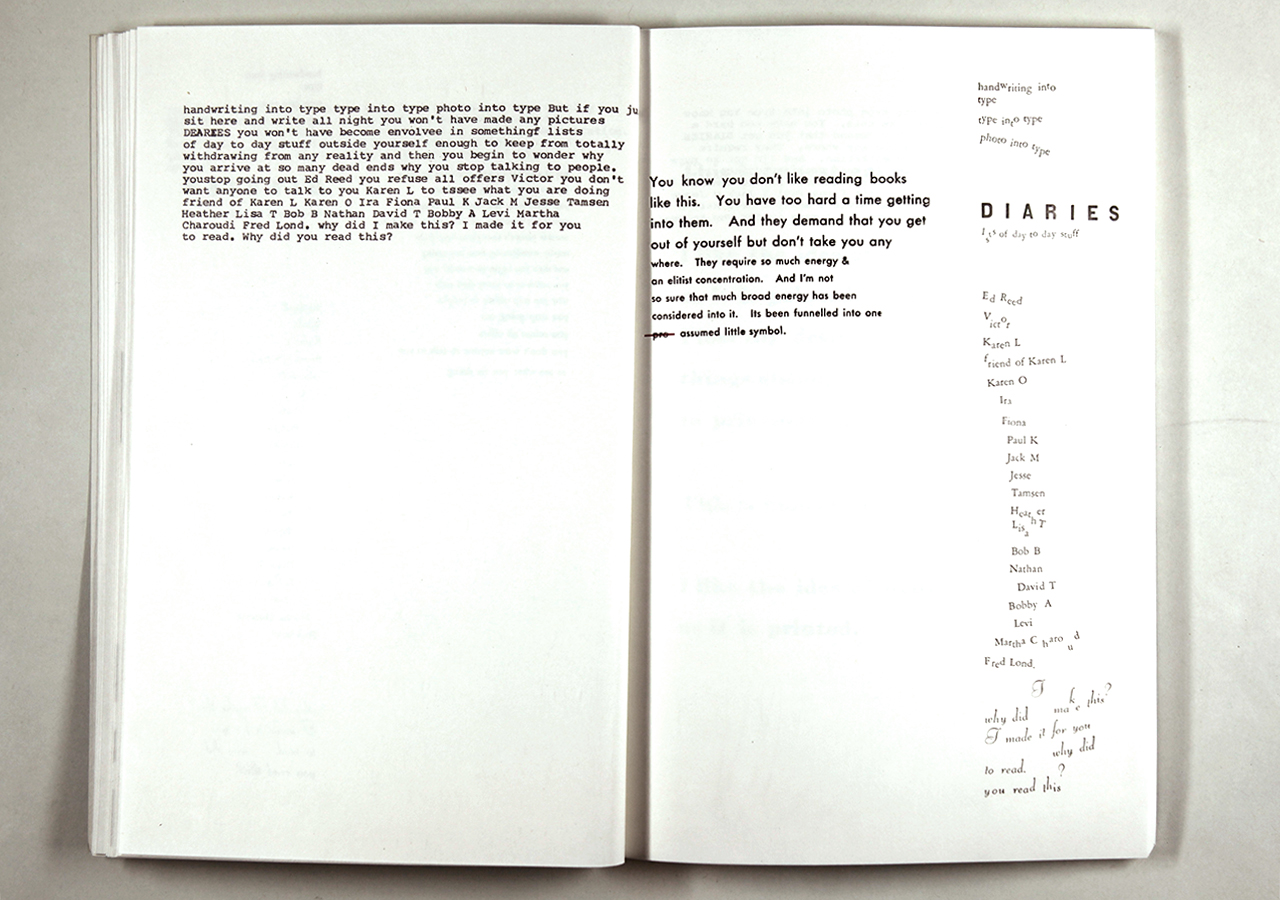 handwriting into type type into type photo into type But if you ju
sit here and write all night you won't have made any pictures
DEARIES you won't have become envolvee in somethingf lists
of day to day stuff outside yourself enough to keep from totally
withdrawing from any reality and then you begin to wonder why
you arrive at so many dead ends why you stop talking to people.
youstop going out Ed Reed you refuse all offers Victor you don't
want anyone to talk to you Karen L to tssee what you are doing
friend of Karen L Karen O Ira Fiona Paul K Jack M Jesse Tamsen
Heather Lisa T Bob B Nathan David T Bobby A Levi Martha
Charoudi Fred Lond. why did I make this? I made it for you
to read. Why did you read this?
You know you don't like reading books
like this. You have too hard a time getting
into them. And they demand that you get
out of yourself but don't take you any
where. They require so much energy &
an elitist concentration. And I'm not
so sure that much broad energy has been
considered into it. Its been funnelled into one
pro assumed little symbol.
handwriting into
type
type into type
photo into type
DIARIES
lsts of day to day stuff
Ed Reed
Victor
Karen L
friend of Karen L
Karen O
Ira
Fiona
Paul K
Jack M
Jesse
Tamsen
Heather
Lisa T
Bob B
Nathan
David T
Bobby A
Levi
Martha Charoud
Fred Lond.
I
why did make this?
I made it for you
why did
to read. ?
you read this